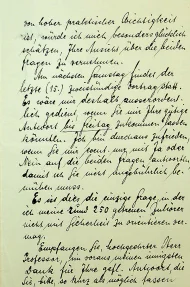 von hoher praktischer Wichtigkeit
ist, würde ich mich besonders glücklich
schätzen, Ihre Ansicht über die beiden
Fragen zu vernehmen.
Am nächsten Samstag findet der
letzte (15.) zweistündige Vortrag statt.
Es wäre mir deshalb ausserordent-
lich gedient, wenn Sie mir Ihre gütige
Antwort bis Freitag zukommen lassen
könnten. Ich bin durchaus zufrieden,
wenn Sie mir sonst nur mit Ja oder
Nein auf die beiden Fragen antworten,
damit ich Sie nicht ungebührlich be-
mühen muss.
Es ist dies die einzige Frage, in der
ich meine rund 250 Zuhörer
nicht mit Sicherheit zu orientieren ver-
mag.
Empfangen Sie, hochgeehrter Herr
Professor, zum voraus meinen innigsten
Dank für Ihre gefl. Antwort, die
Sie bitte, so kurz als möglich fassen